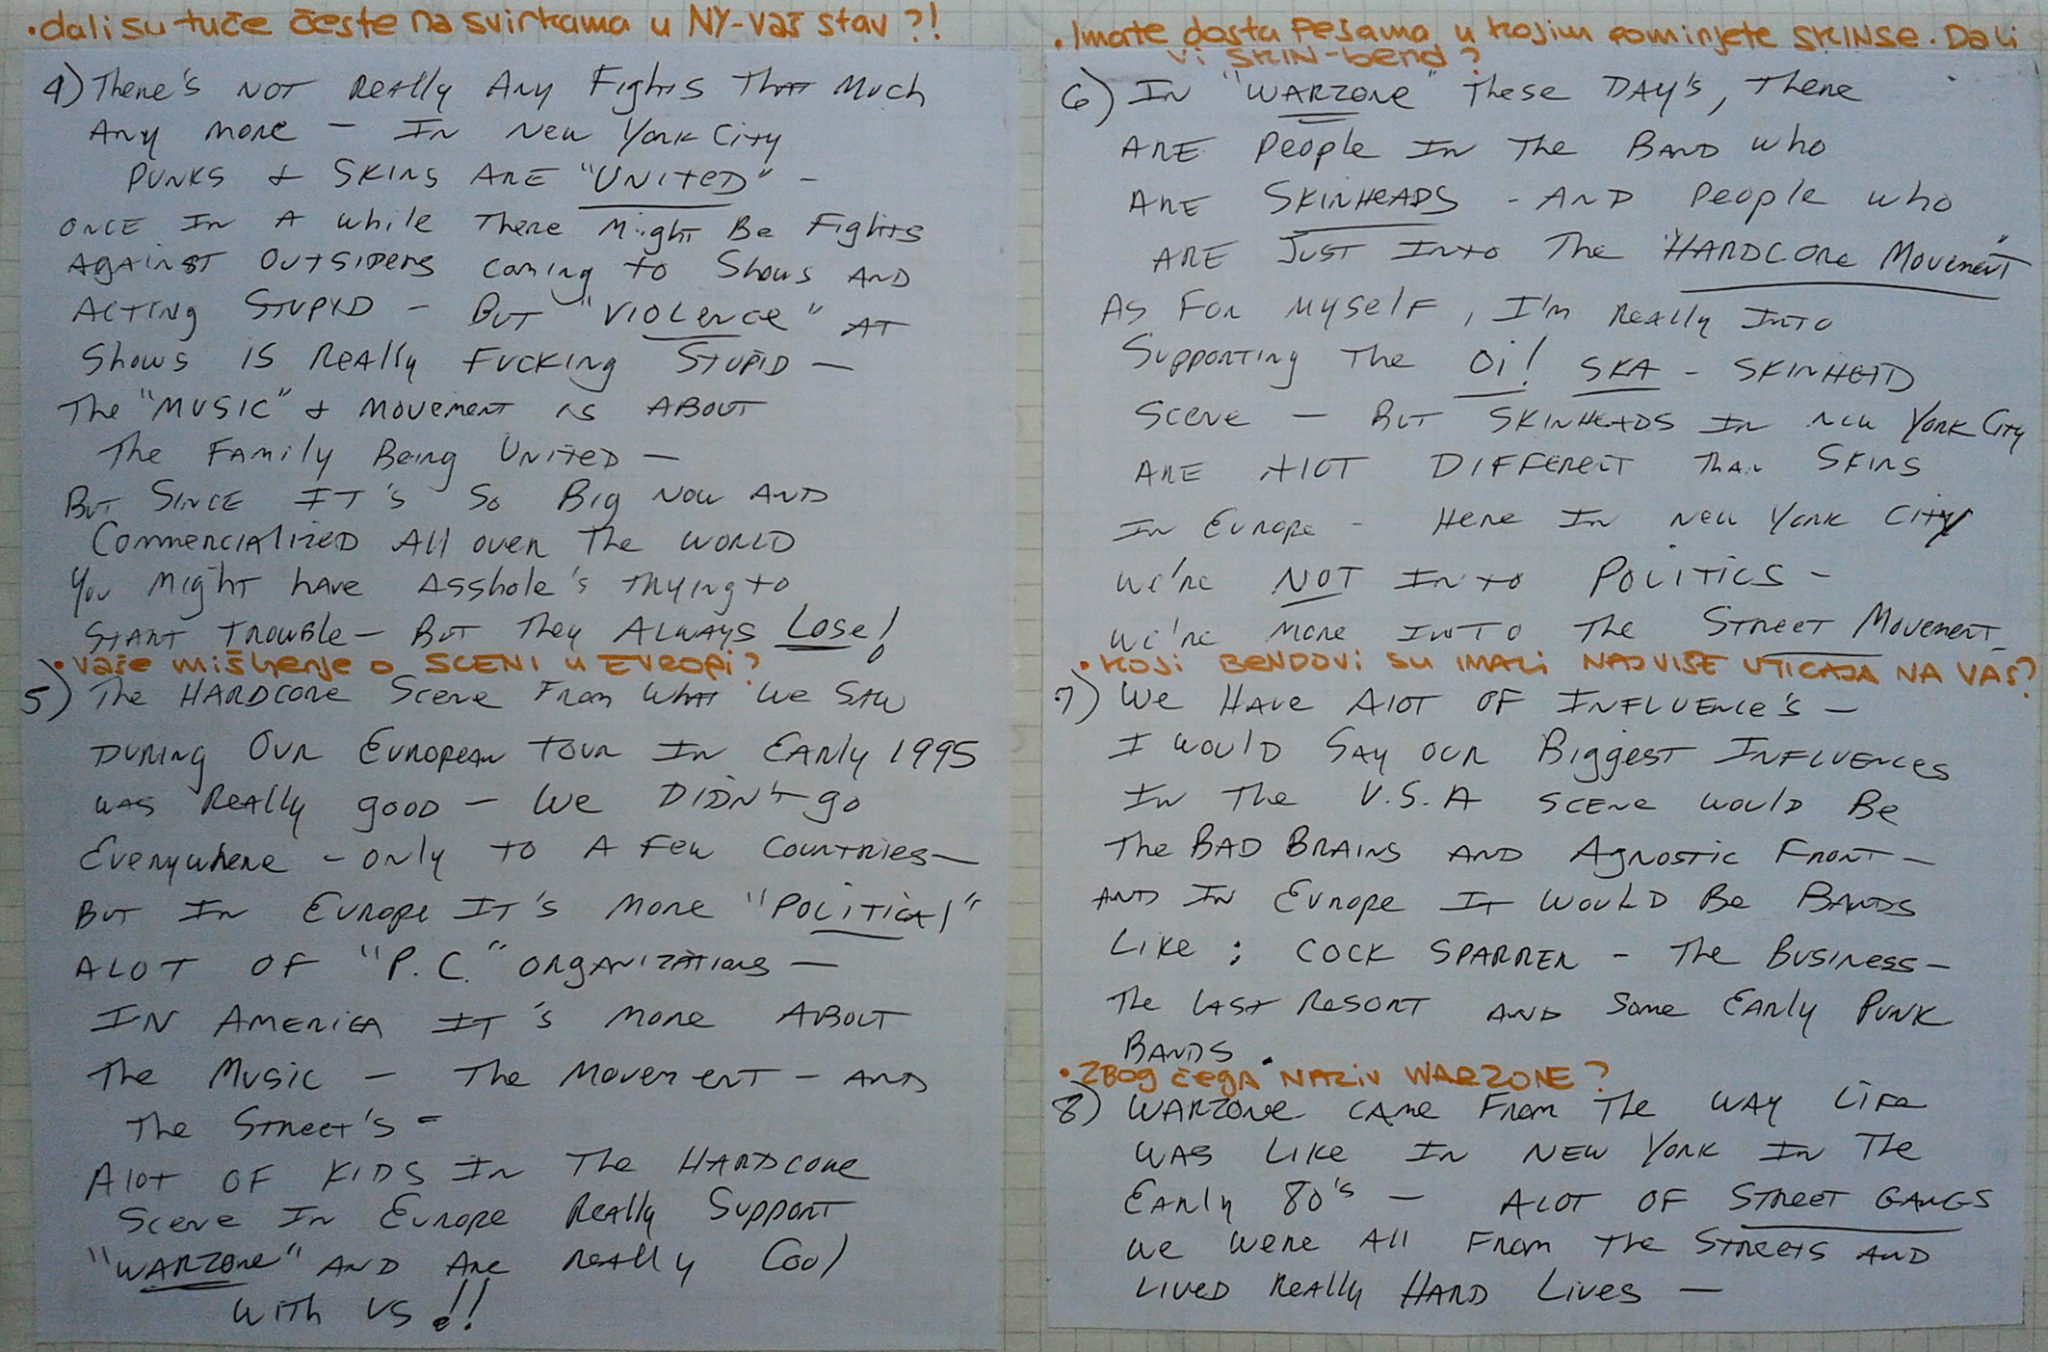 •dali su tuče česte na svirkama u NY-vaš stav?!
4) There's NOT Really Any Fights That Much
Any more — In New York City
PUNKS & SKINS ARE "UNITED" -
ONCE IN A While There Might Be Fights
Against OUTSIDERS coming to Shows AND
ACTING STUPID - BUT "VIOLENCE" AT
Shows IS Really FUCKING STUPID —
The "MUSIC" & MOVEMENT is ABOUT
The Family Being United —
But Since IT's So Big Now AND
Commercialized All over The WORLD
You Might have Asshole's Trying to
START Trouble — But They Always Lose!
•vaše mišljenje o SCENI u EVROPI?
5) The HARDCORE Scene From What We Saw
DURING OUR EUROPEAN TOUR IN EARly 1995
was Really good — We DIDN't go
Everywhere - only to A Few Countries—
But In Europe IT's More "Political"
ALOT OF "P.C." organizations —
IN AMERICA IT's More ABOUT
The Music — The Movement — AND
The Street's -
Alot OF KIDS IN The HARDCORE
Scene In Europe Really Support
"WARZONE" AND Are really Cool
With US!!
•Imate dosta pesama u kojim pominjete SKINSE. Da li
vi SKIN-bend?
6) In "WARZONE" These DAY's, There
ARE People In The BAND who
ARE SKINHEADS - AND People who
ARE JUST Into The "HARDCORE Movement"
As For Myself, I'm Really Into
Supporting The Oi! SKA - SKINHEAD
Scene — But SKINHEADS In New York City
ARE AlOT DIFFERENT Than SKINS
In Europe - Here In New York City
We're NOT Into POLITICS -
We're More INTO The STREET Movement
•KOJI BENDOVI SU IMALI NAJVIŠE UTICAJA NA VAS?
7) We HAVE AlOT OF INFLUENCE's —
I WOULD SAY OUR Biggest INFLUENCES
In The U.S.A SCENE WOULD Be
The BAD BRAINS AND Agnostic Front—
AND IN Europe It WOULD Be BANDS
Like: COCK SPARRER - The Business—
The LAST Resort AND Some Early Punk
BANDS.
•ZBOG čega NAZIV WARZONE?
8) WARZONE CAME From The WAY Life
WAS LIKE IN NEW YORK IN The
EARly 80's — ALOT OF STREET GANGS
We Were All From The STREETS AND
LIVED Really HARD Lives —